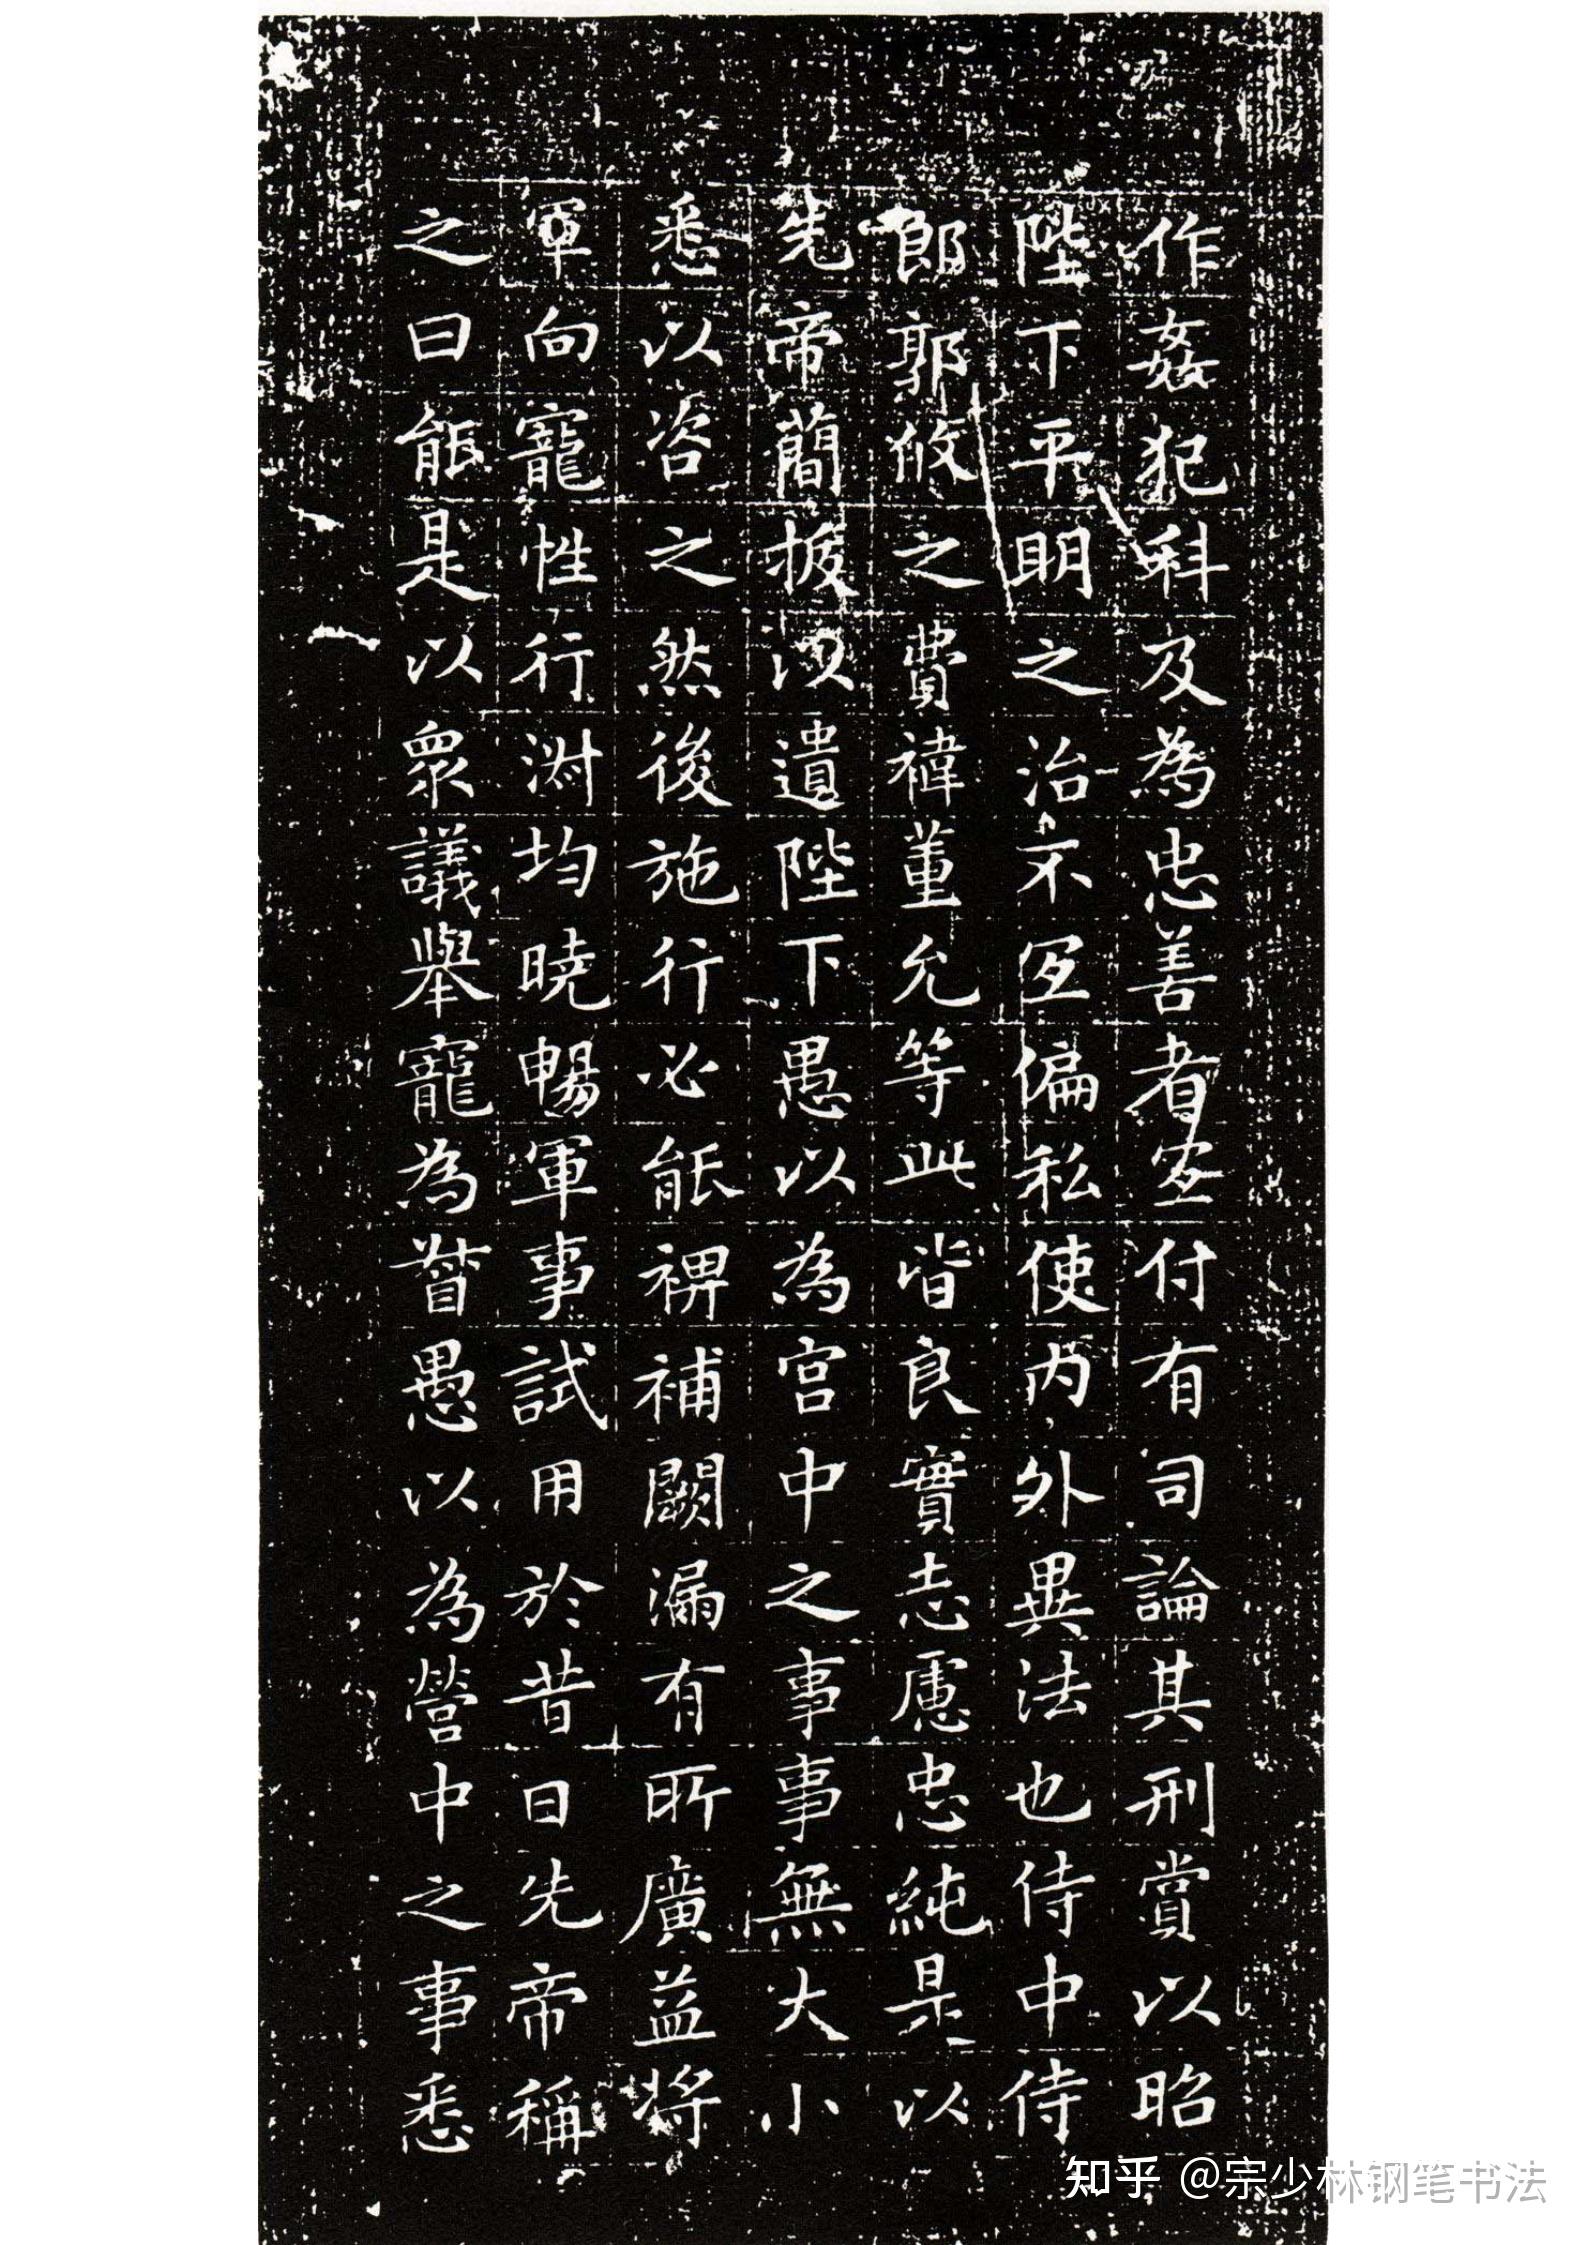 作姦犯科及為忠善者宜付有司論其刑賞以昭
陛下平明之治不宜偏私使内外異法也侍中侍
郎郭攸之費禕董允等此皆良實志慮忠純是以
先帝簡拔以遺陛下愚以為宮中之事事無大小
悉以咨之然後施行必能裨補闕漏有所廣益將
軍向寵性行淑均曉暢軍事試用於昔日先帝稱
之曰能是以眾議舉寵為督愚以為營中之事悉
知乎 @宗少林钢笔书法